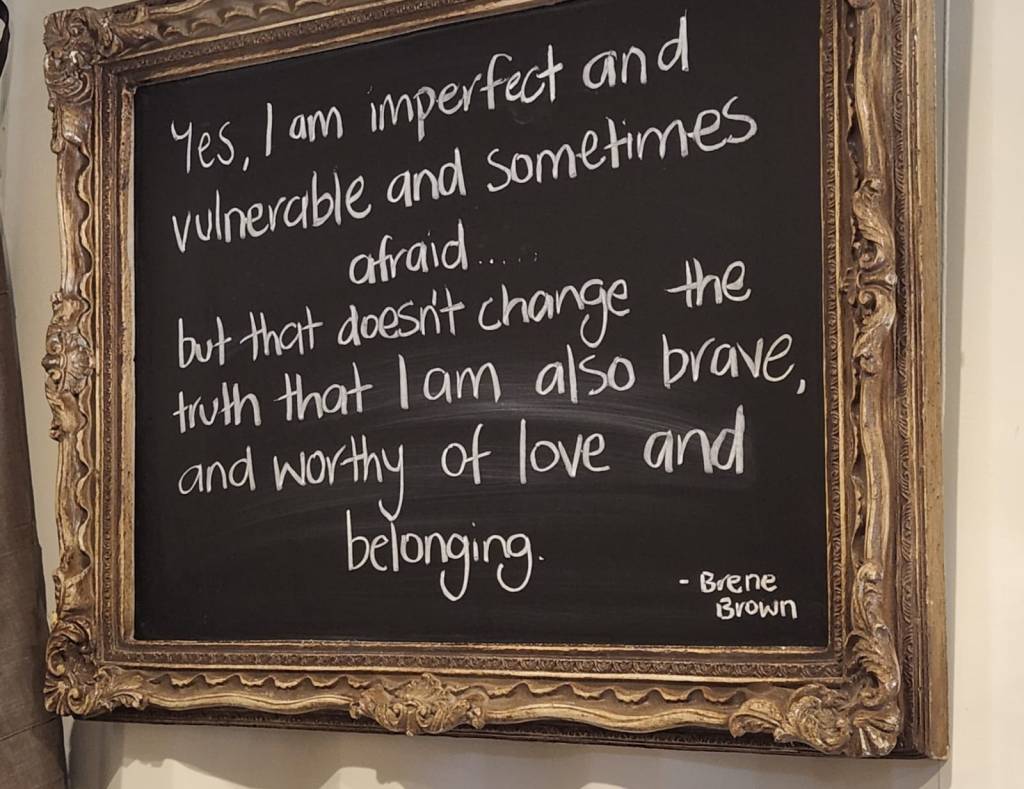 Yes, I am imperfect and
vulnerable and sometimes
afraid.....
but that doesn't change the
truth that I am also brave,
and worthy of love and
belonging.
- Brene
Brown